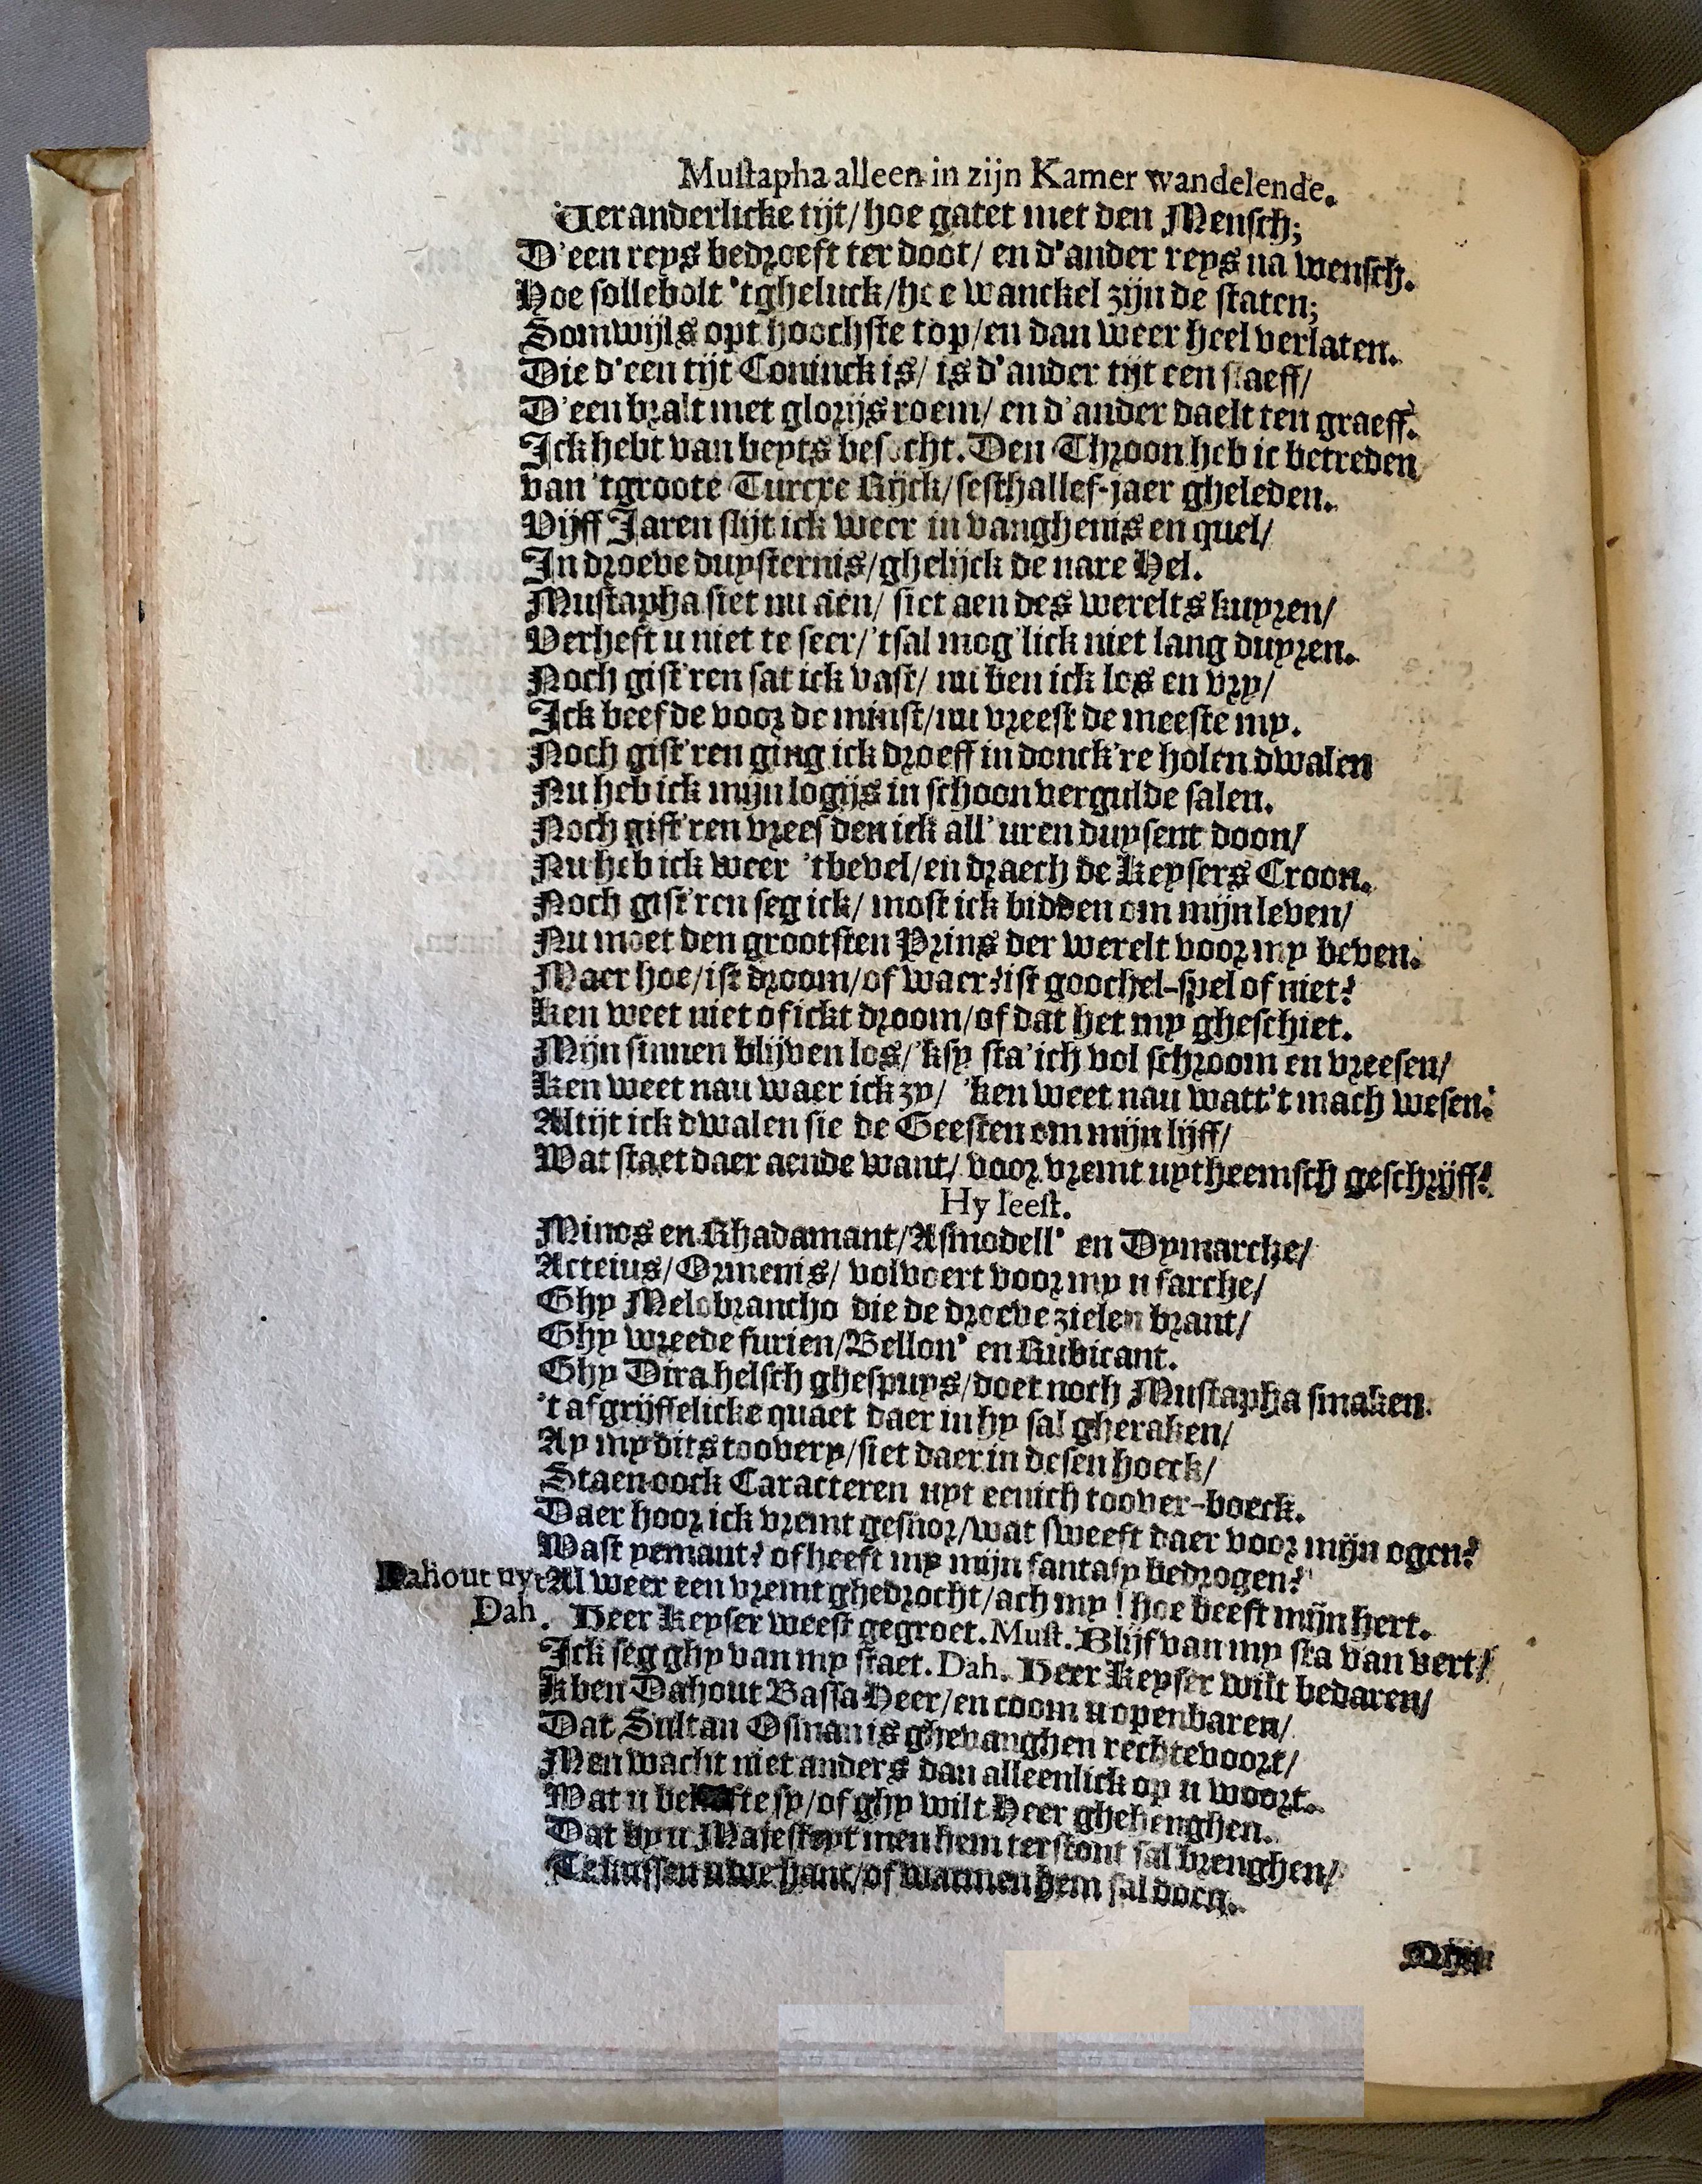 Mustapha alleen in zijn Kamer wandelende.
Veranderlicke tijt/ hoe gatet met den Mensch;
D'een reys bedroeft ter doot/ en d'ander reys na wensch.
Hoe sollebolt 'tgheluck/ hoe wanckel zijn de staten;
Somwijls opt hoochste top/ en dan weer heel verlaten.
Die d'een tijt Coninck is/ is d'ander tijt een slaeff/
D'een bralt met glorijs roem/ en d'ander daelt ten graeff.
Ick hebt van beyts besocht. Den Throon heb ic betreden
van 'tgroote Turcxe Rijck/ sesthallef-jaer gheleden.
Vijff Jaren slijt ick weer in vanghenis en quel/
In droeve duysternis/ ghelijck de nare Hel.
Mustapha siet nu aen/ siet aen des werelts kuyren/
Verheft u niet te seer/ 'tsal mog'lick niet lang duyren.
Noch gist'ren sat ick vast/ nu ben ick los en vry/
Ick beefde voor de minst/ nu vreest de meeste my.
Noch gist'ren ging ick droeff in donck're holen dwalen
Nu heb ick mijn logijs in schoon vergulde salen.
Noch gist'ren vreesden ick all' uren duysent doon/
Nu heb ick weer 'tbevel/ en draech de Keysers Croon.
Noch gist'ren seg ick/ most ick bidden om mijn leven/
Nu moet den grootsten Prins der werelt voor my beven.
Maer hoe/ ist droom/ of waer? ist goochel-spel of niet?
Ken weet niet of ickt droom/ of dat het my gheschiet.
Mijn sinnen blijven los/ 'ksy sta'ich vol schroom en vreesen/
Ken weet nau waer ick zy/ 'ken weet nau watt't mach wesen.
Altijt ick dwalen sie de Geesten om mijn lijff/
Wat staet daer aende want/ voor vremt uytheemsch geschrijff!
Hy leest.
Minos en Rhadamant/ Asmodell' en Dymarche/
Acteius/ Ormenis/ volvoert voor my u farche/
Ghy Melobrancho die de droeve zielen brant/
Ghy wreede furien/ Bellon' en Rubicant.
Ghy Dira helsch ghespuys/ doet noch Mustapha smaken.
't afgrijffelicke quaet daer in hy sal gheraken/
Ay my dits toovery/ siet daer in desen hoeck/
Staen oock Caracteren uyt eenich toover-boeck.
Daer hoor ick vremt gesnor/ wat sweeft daer voor mijn ogen?
Wast yemant? of heeft my mijn fantasy bedrogen?
Dahout uyt Al weer een vremt ghedrocht/ ach my! hoe beeft mijn hert.
Dah. Heer Keyser weest gegroet. Must. Blijf van my sta van vert/
Ick seg ghy van my staet. Dah. Heer Keyser wilt bedaren/
Kben Dahout Bassa Heer/ en coom u openbaren/
Dat Sultan Osman is ghevanghen rechtevoort/
Men wacht niet anders dan alleenlick op u woort.
Wat u beliefte sy/ of ghy wilt Heer ghehenghen.
Dat by u Majesteyt men hem terstont sal brenghen/
Te kussen uwe hant/ of wat men hem sal doen.